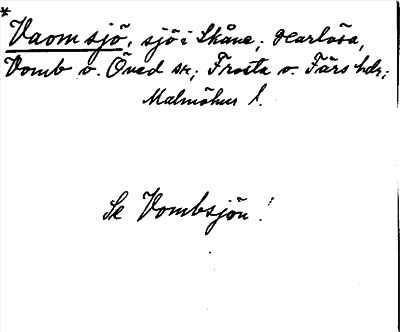 *
Vaomsjö, sjö i Skåne; Harlösa,
Vomb o. Öved sn; Frosta o. Färs hdr;
Malmöhus l.
Se Vombsjön!